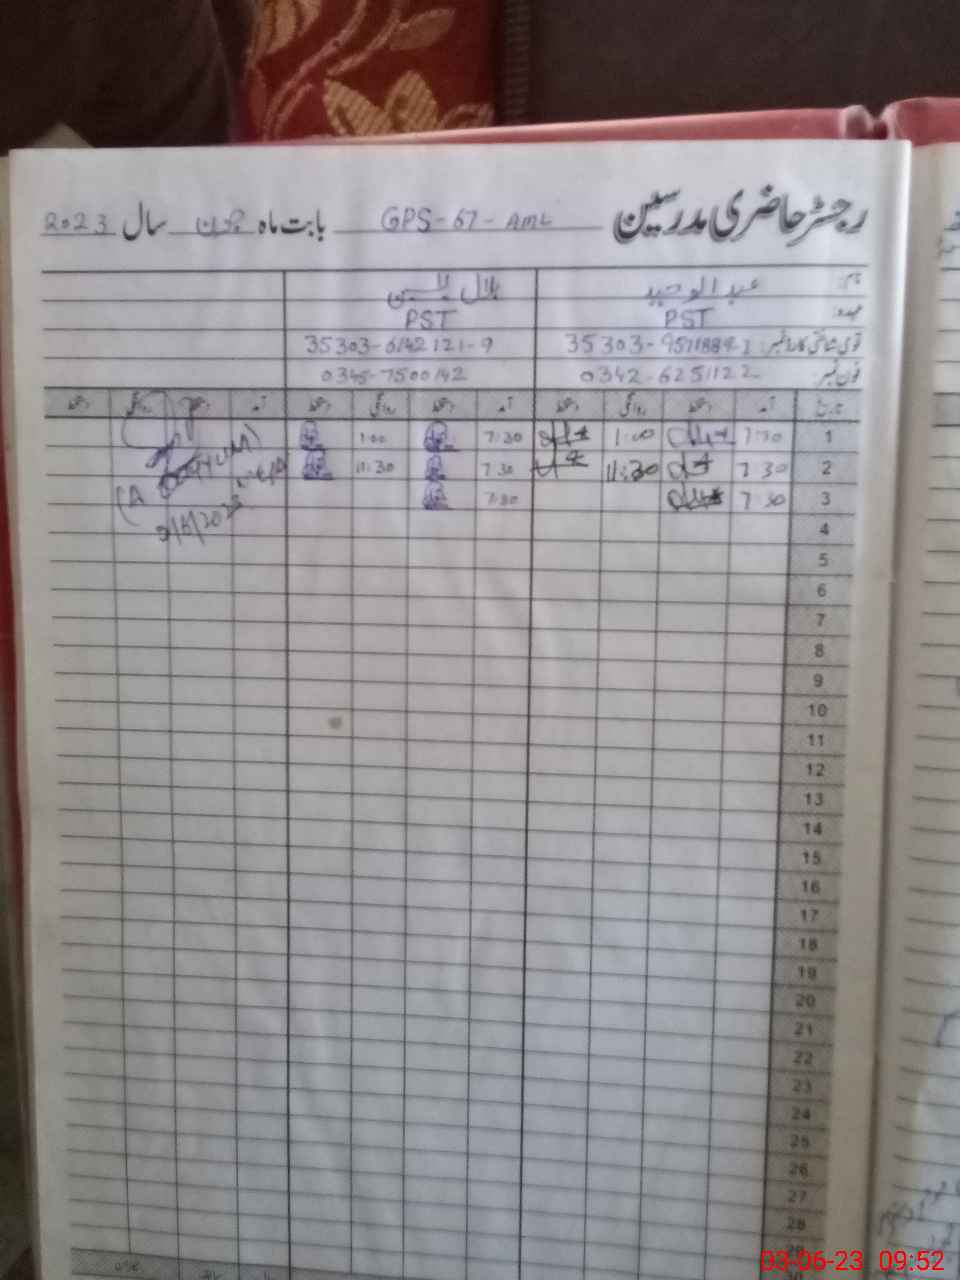 رجسٹر حاضری مدرسین GPS-67-AML بابت ماہ جون سال 2023
نام: عبدالوحید بلال یٰسین
عہدہ: PST PST
قومی شناختی کارڈ نمبر: 35303- 35303-6142121-9
فون نمبر: 0342-6251122 0345-7500142
تاریخ آمد دستخط روانگی دستخط آمد دستخط روانگی دستخط آمد دستخط روانگی دستخط
1 7:30 1:00 7:30 1:00
2 7 30 11:30 7 30 11:30
3 7:30 7:30
4
5
6
7
8
9
10
11
12
13
14
15
16
17
18
19
20
21
22
23
24
25
26
27
28
29
03-06-23 09:52